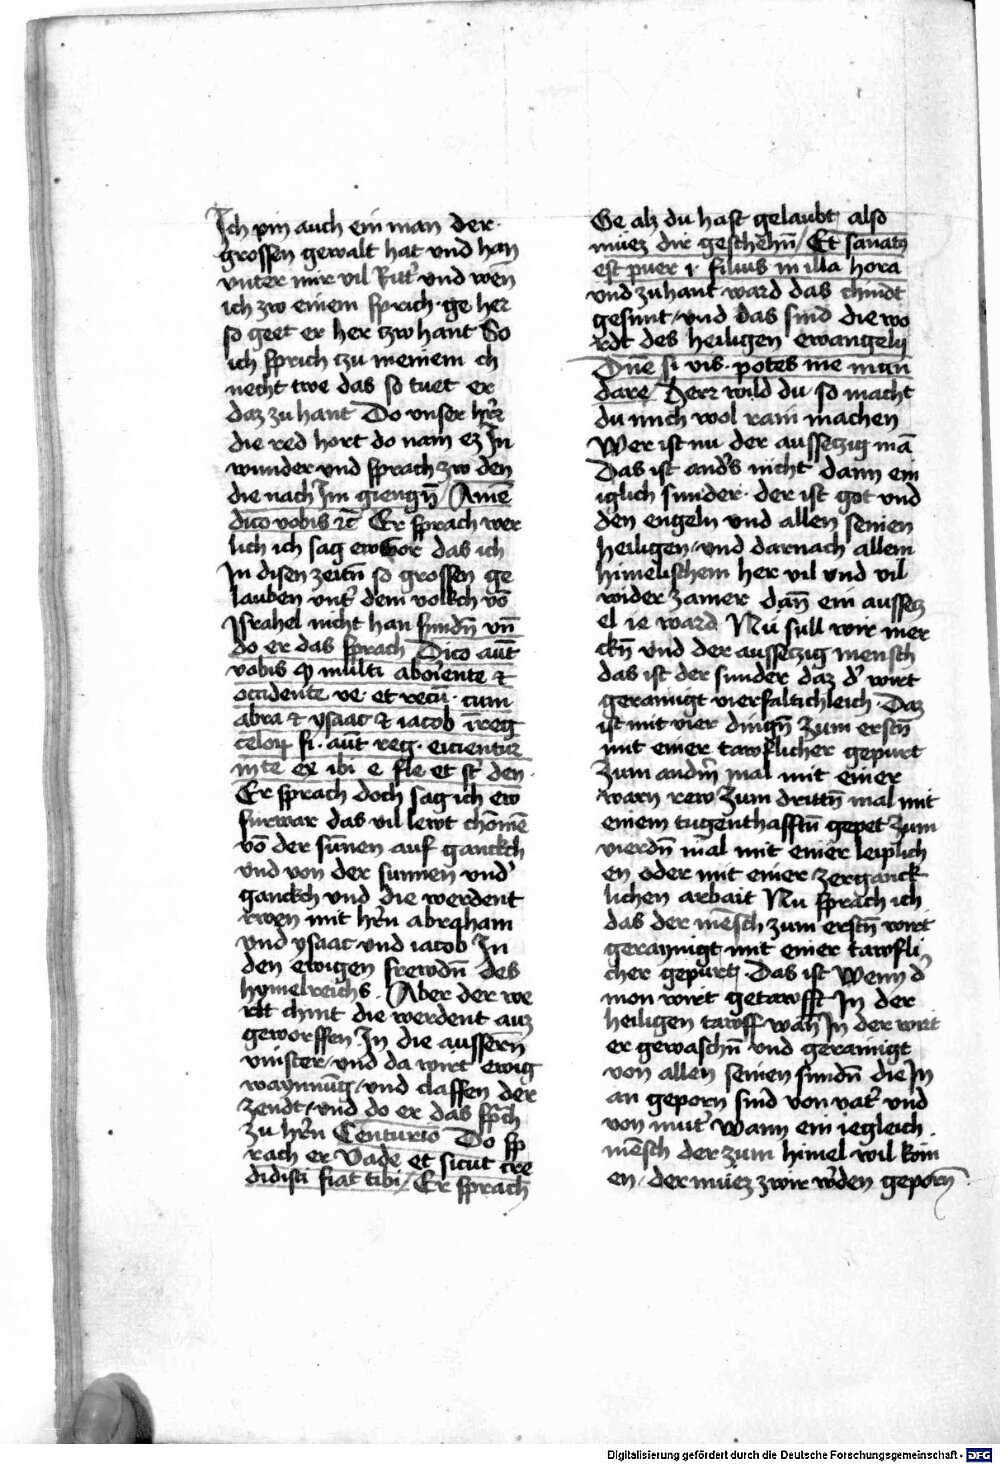 Ich pin auch ein man der
grossen gewalt hat vnd han
vnter mir vil Ritt̕ vnd wen
ich zw einem sprich ge her
so geet er her tzw hant So
ich sprich tzu meinem ch
necht twe das so tuet er
daz zu hant Do vnser hr̄r
die red hort do nam ez In
wunder vnd sprach zw den
die nach Im giengn̄ / Amē
dico vobis ꝛc̄ Er sprach wer
lich ich sag ew vor das ich
In disen zeitn̄ so grossen ge
lauben vnt̕ dem volkch vō
Israhel nicht han fundn̄ vn̄
do er das sprach Dico aūt
vobis ꝙ multi ab or̄iente ⁊
occidente ve et recū cum
abra ⁊ ysaac ⁊ iacob ī reg
celoꝝ fi aūt reg eicientur
in te ex ibi e fle et st̕ den
Er sprach doch sag ich ew
furwar das vil lewt chōmē
vō der sūnen auf ganckch
vnd von der sunnen vnd̕
ganckch vnd die werdent
rwen mit hr̄n abraham
vnd ysaac vnd iacob In
den ewigen frewdn̄ des
hymelreichs Aber der we
rlt chint die werdent auz
geworffen In die aussern
vinster / vnd da wirt ewig
waynnūg / vnd claffen der
zendt / vnd do er das sprch
zu hr̄n Centurio Do sp
rach er Vade et sicut cre
didisti fiat tibi / Er sprach
Ge alz du hast gelaubt also
müez dir geschehn̄ / Et sanatꝰ
est puer i filius in illa hora
vnd zu hant ward das chindt
gesunt / vnd das sind die wo
rdt des heiligen ewangelij
Dn̄e si vis potes me mun
dare / Herr wild du so macht
du mich wol rain machen
Wer ist nu der aussetzig mā
Das ist and̕s nicht dann ein
iglich sunder der ist got vnd
den engeln vnd allen seinen
heiligen / vnd darnach allem
himelischem her vil vnd vil
wider zamer dan̄ ein aussetz
el ie ward Nu sull wir mer
ckn̄ vnd der aussetzig mensch
das ist der sunder daz d̕ wirt
gerainigt vierfaltichleich Daz
ist mit vier dingn̄ Zum erstn̄
mit einer tawflicher gepurt
Zum andm̄ mal mit einer
warn rew Zum drittn̄ mal mit
einem tugenthafftn̄ gepet Zum
vierdn̄ mal mit einer leiplich
en oder mit einer zerganck
lichen arbait Nu sprach ich
das der mēsch zum erstn̄ wirt
geraynigt mit einer tawfli
cher gepurt Das ist Wenn d̕
mon wirt getawfft In der
heiligen tawff wan̄ In der wirt
er gewaschn̄ vnd gerainigt
von allen seinen sundn̄ die In
an geporn sind von vat̕ vnd
von mut̕ Wann ein iegleich
mēsch der zum himel wil kōm
en / der müez zwir w̕den geporn̄
Digitalisierung gefördert durch die Deutsche Forschungsgemeinschaft - DFG